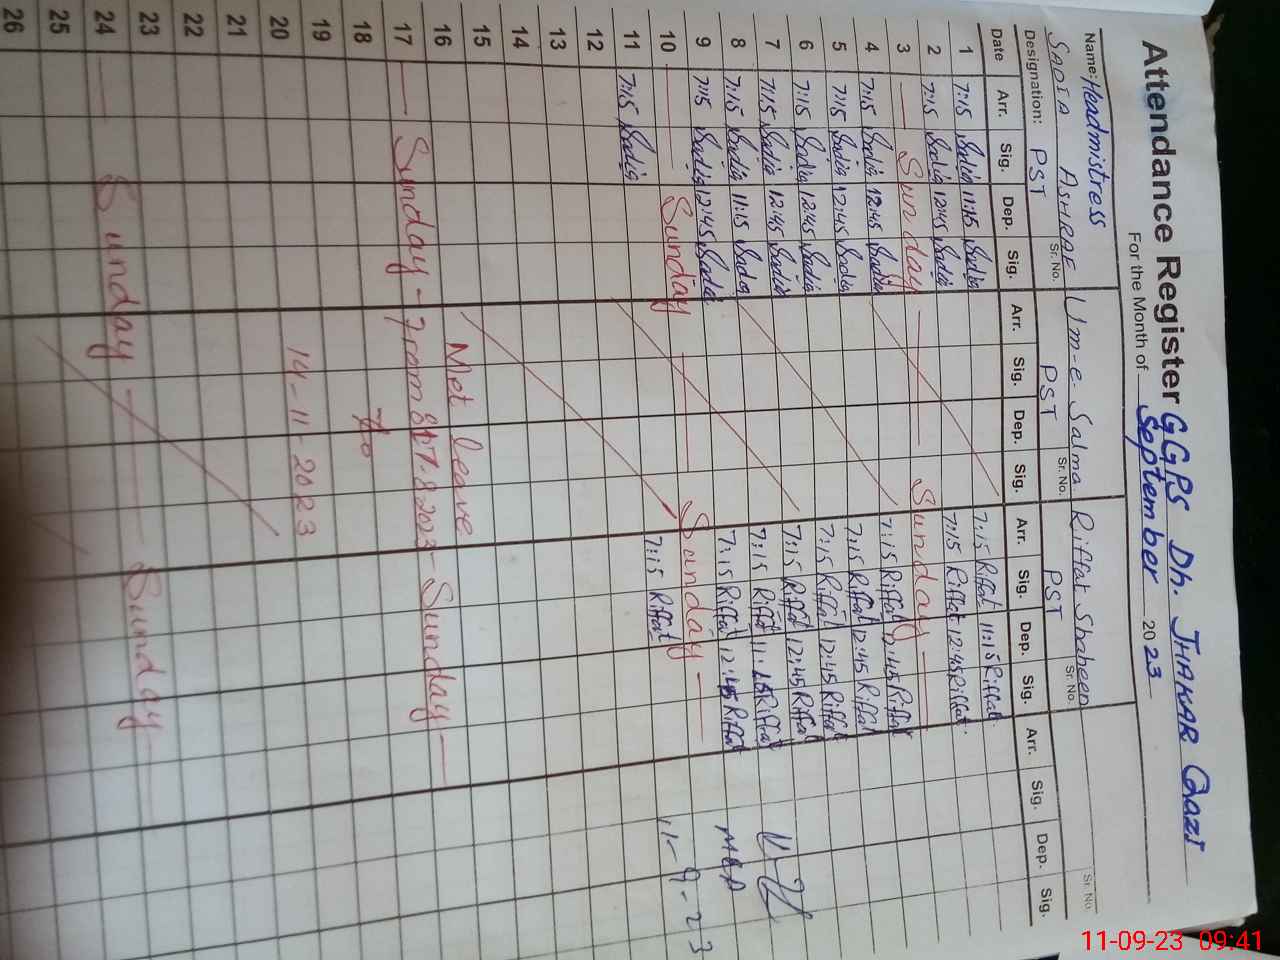 Attendance Register GGPS Dh. JHAKAR Qazi
For the Month of September 2023
Name: Headmistress
SADIA ASHRAF Sr. No. Um-e-Salma Sr. No. Riffat Shaheen Sr. No. Sr. No.
Designation: PST PST PST
Date Arr. Sig. Dep. Sig. Arr. Sig. Dep. Sig. Arr. Sig. Dep. Sig. Arr. Sig. Dep. Sig.
1 7:15 Sadia 11:15 Sadia 7:15 Riffat 11:15 Riffat
2 7:15 Sadia 12:45 Sadia 7:15 Riffat 12:45 Riffat
3 Sunday Sunday
4 7:15 Sadia 12:45 Sadia 7:15 Riffat 12:45 Riffat
5 7:15 Sadia 12:45 Sadia 7:15 Riffat 12:45 Riffat
6 7:15 Sadia 12:45 Sadia 7:15 Riffat 12:45 Riffat
7 7:15 Sadia 12:45 Sadia 7:15 Riffat 12:45 Riffat
8 7:15 Sadia 11:15 Sadia 7:15 Riffat 11:15 Riffat
9 7:15 Sadia 12:45 Sadia 7:15 Riffat 12:45 Riffat
10 Sunday Sunday
11 7:15 Sadia 7:15 Riffat 11-9-23
12
13
14
15
16 Met leave
17 Sunday - From 8.2023 - Sunday
18 to
19
20 14-11-2023
21
22
23
24 Sunday Sunday
25
26
11-09-23 09:41